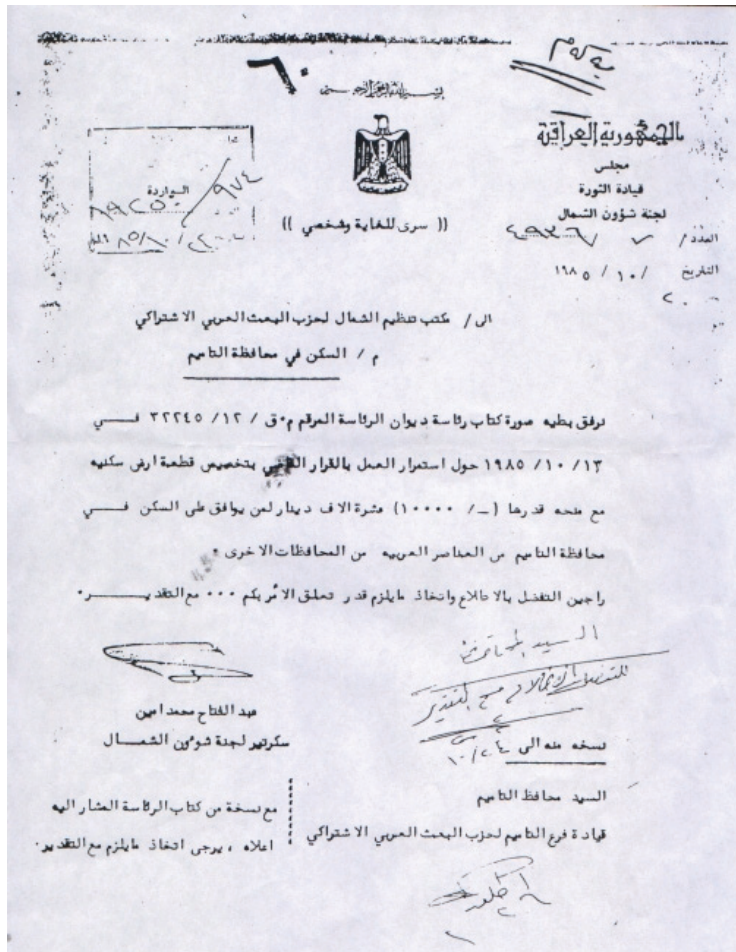 به كه م
٦٠
بسم الله الرحمن الرحيم
الجمهورية العراقية
مجلس
قيادة الثورة
لجنة شؤون الشمال
العدد / ٧ / ٤٩٣٦
التاريخ / ١٠ / ١٩٨٥
٢٠
الواردة
٩٧٤
(( سرى للغاية وشخصي ))
الى / مكتب تنظيم الشمال لحزب البعث العربي الاشتراكي
م / السكن في محافظة التاميم
نرفق بطيه صورة كتاب رئاسة ديوان الرئاسة المرقم م٠ق / ١٢/ ٣٢٢٤٥ فــــي
١٣ /١٠ /١٩٨٥ حول استمرار العمل بالقرار القاضي بتخصيص قطعة ارض سكنيه
مع منحه قدرها (ــ/ ١٠٠٠٠) عشرة الاف دينار لمن يوافق على السكن فــــي
محافظة التاميم من العناصر العربيه من المحافظات الاخرى ٠
راجين التفضل بالاطلاع واتخاذ مايلزم قدر تعلق الأمر بكم ٠٠٠ مع التقديـــــر٠
عبد الفتاح محمد امين
سكرتير لجنة شوؤون الشمـــال
السيد
للتفضل بالاطلاع مع التقدير
١٠/٢٤
نسخه منه الى
السيد محافظ التاميم
قيادة فرع التاميم لحزب البعث العربي الاشتراكي
مع نسخة من كتاب الرئاسة المشار اليه
اعلاه ، يرجى اتخاذ مايلزم مع التقدير٠